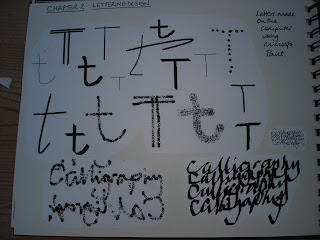 CHAPTER 2 LETTERING DESIGN
Letters made
on the
computer
using
microsoft
Paint.
t T t T t T t T
t t t T T t T T
Calligraphy
Calligraphy
Calligraphy
Calligraphy
Calligraphy
Calligraphy